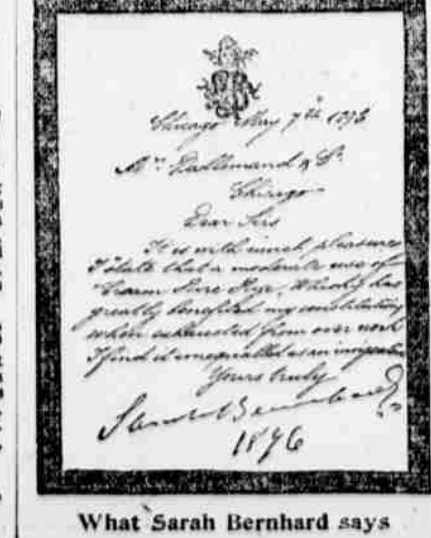 Chicago May 7th 1896
Mrs. Dallemand & Co.
Chicago
Dear Sirs
It is with much pleasure
I state that a moderate use of
Cream Pure Rye, Whisky has
greatly benefited my constitution
when exhausted from over work
I find it unequalled as an invigorator
Yours truly
Sarah Bernhardt
1896
What Sarah Bernhard says